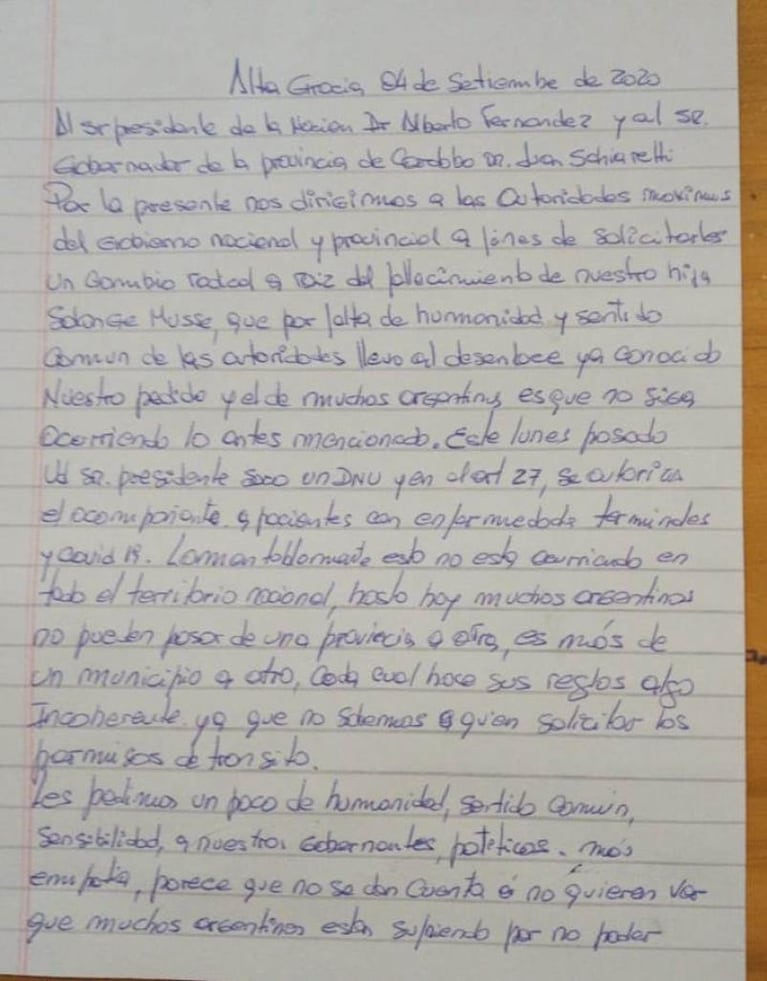 Alta Gracia, 04 de Setiembe de 2020
Al sr presidente de la Nacion Dr Alberto Fernandez y al sr.
Gobernador de la provincia de Cordobba Dr. Juan Schiaretti
Por la presente nos dirigimos a las Autoridades maximas
del Gobierno nacional y provincial a fines de solicitarles
Un Cambio radical a raiz del fallecimiento de nuestra hija
Solange Musse, que por falta de hummanidad y sentido
Comun de las autoridades llevo al desenlace ya conocido
Nuestro pedido y el de muchos argentinos es que no siga
Ocurriendo lo antes mencionado. Este lunes pasado
Ud sr. presidente Saco un DNU y en el art 27, se autoriza
el acompañante a pacientes con enfermedades terminales
y covid 19. Lamentablemente esto no esta ocurriendo en
todo el territorio nacional, hasta hoy muchos argentinos
no pueden pasar de una provincia a otra, es más de
Un municipio a otro, Cada cual hace sus reglas algo
Incoherente ya que no sabemos a quien solicitar los
permisos de transito.
Les pedimos un poco de humanidad, sentido Comun,
Sensibilidad, a nuestros Gobernantes, politicos. más
empatia, parece que no se dan Cuenta ó no quieren ver
que muchos argentinos estan sufriendo por no poder